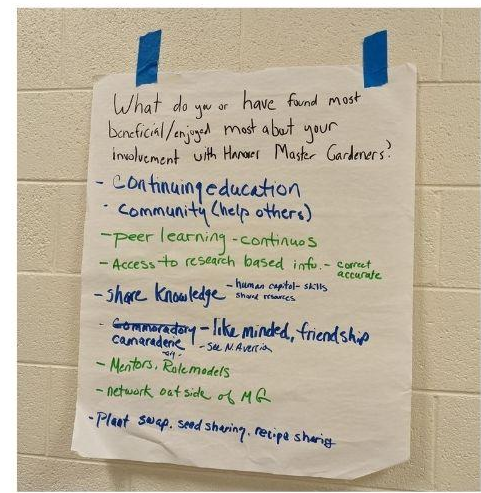 What do you or have found most
beneficial/enjoyed most about your
involvement with Hanover Master Gardeners?
- Continuing education
- Community (help others)
- peer learning - continuos
- Access to research based info. - correct
accurate
- Share Knowledge - human capital - skills
shared resources
- Commoradory - like minded, friendship
camaraderie - see N.
- Mentors, Role models
- network outside of MG
- Plant swap, seed sharing, recipe sharing